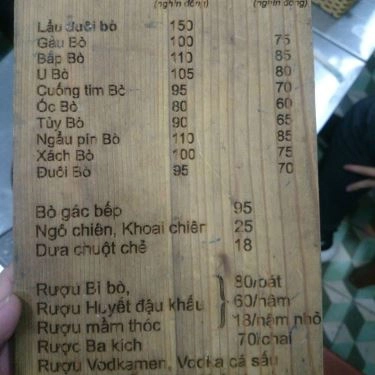 (nghìn đồng) (nghìn đồng)
Lẩu đuôi bò 150
Gầu Bò 100 75
Bắp Bò 110 85
U Bò 105 80
Cuống tim Bò 95 70
Óc Bò 80 60
Tủy Bò 90 65
Ngẩu pín Bò 110 85
Xách Bò 100 75
Đuôi Bò 95 70
Bò gác bếp 95
Ngô chiên, Khoai chiên 25
Dưa chuột chẻ 18
Rượu Bì bò, 80/bát
Rượu Huyết đậu khấu 60/nậm
Rượu mầm thóc 18/nậm nhỏ
Rược Ba kích 70/chai
Rượu Vodkamen, Vodka cá sấu